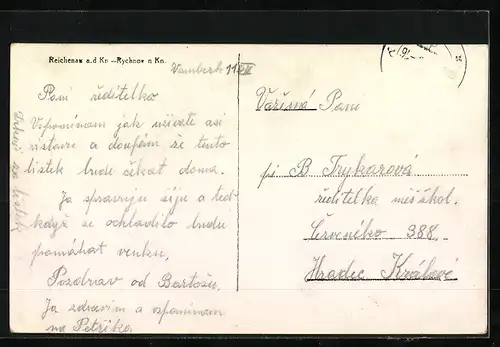 Reichenau a.d Kn.–Rychnov n Kn.
Vamberk 11.
Paní ředitelko
Vzpomínám jak užíváte asi
a doufám že tento
lístek bude čekat doma.
Já spravuju šiju a teď
když se ochladilo budu
pomáhat venku.
Pozdrav od Bartošů.
Já zdravím a vzpomínám
na Petříka.
Vážená Paní
pí B Trykarová
ředitelka měš. škol.
Červeného 388.
Hradec Králové